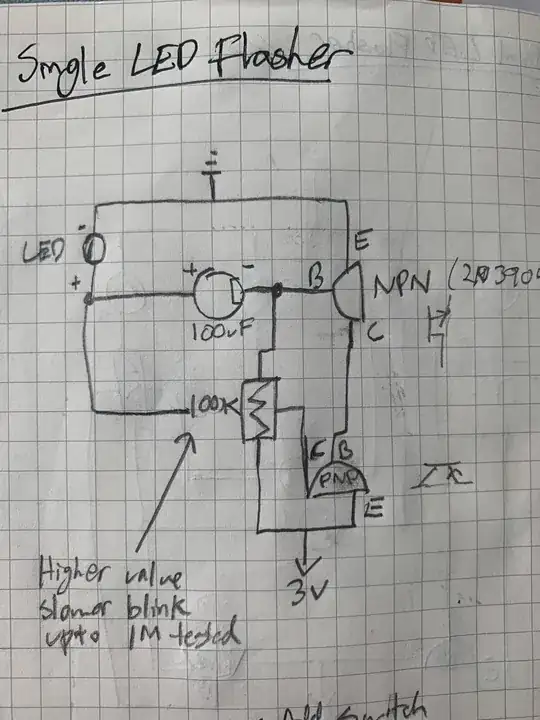 Single LED Flasher
-
LED
+
+
-
100uF
B
E
NPN (2N390
C
100K
C B
PNP
E
3V
Higher value
slower blink
upto 1M tested
Add switch